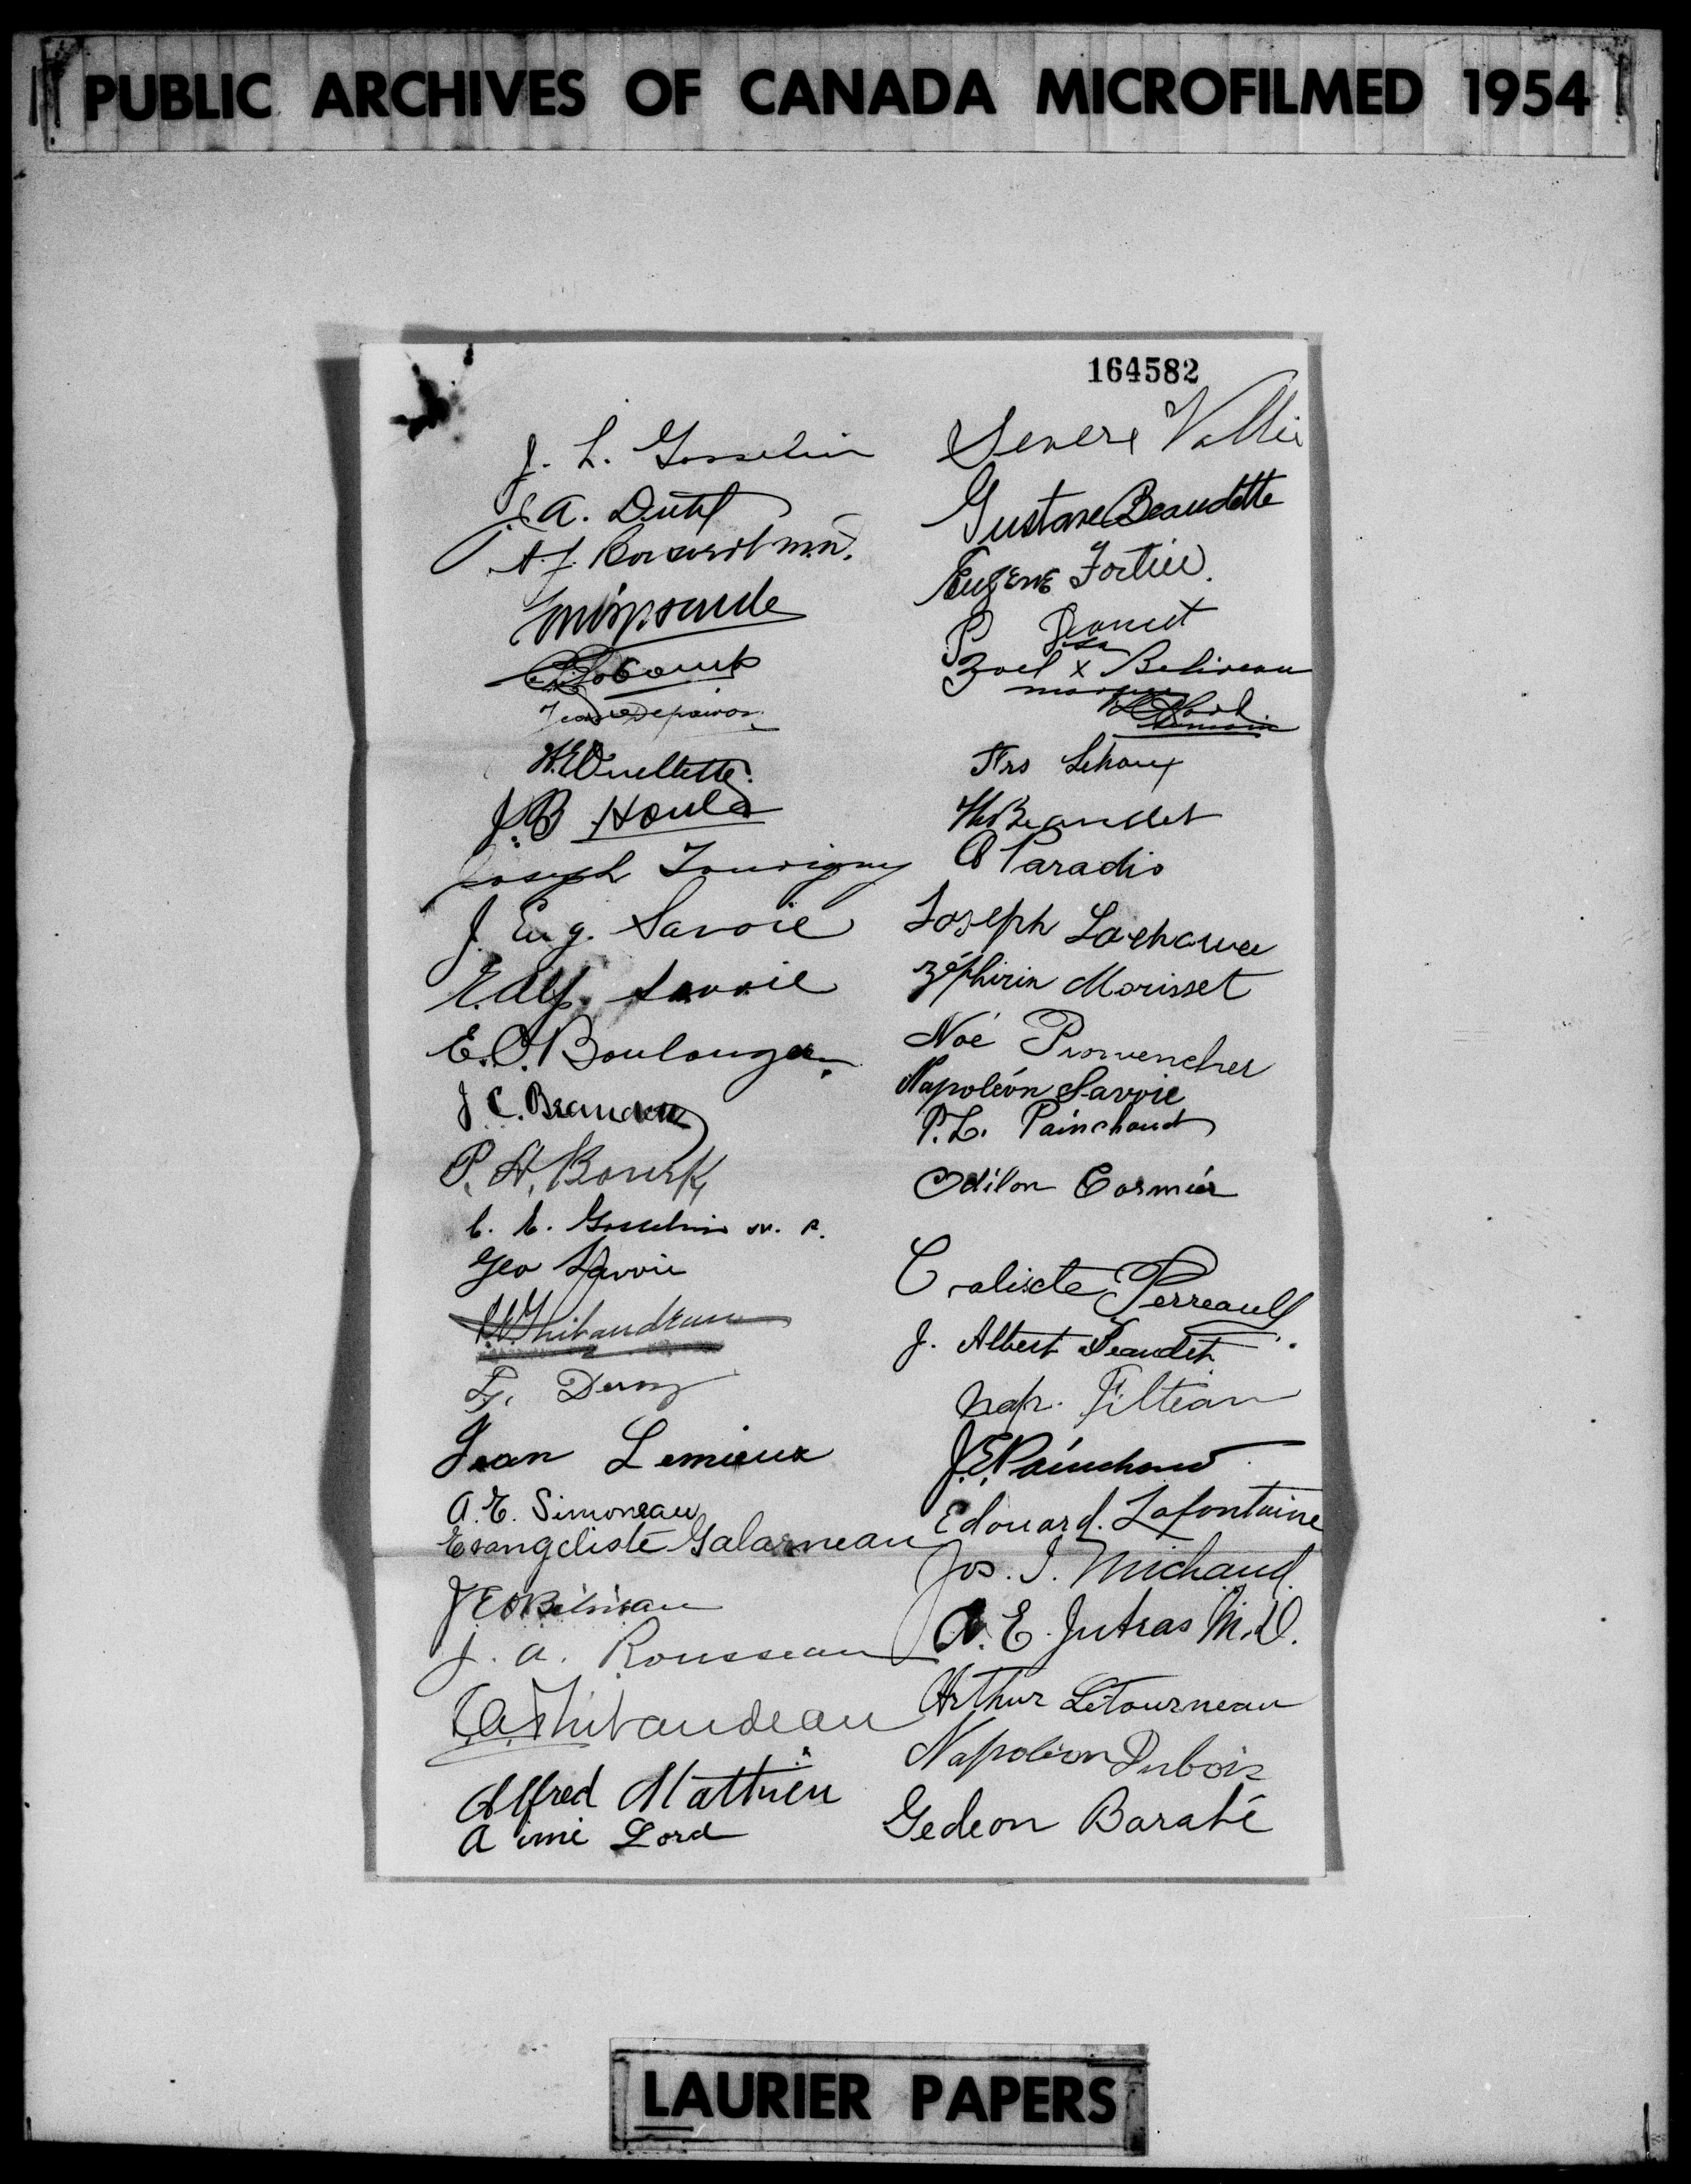 PUBLIC ARCHIVES OF CANADA MICROFILMED 1954
164582
J. L. Gosselin
A. Dutil
A. J.
W. E. Ouellette
J. B Houle
Joseph Tourigny
J. Eug. Savoie
E. Alf. Savoie
E. O. Boulanger
J C. Beaudette
P. H. Bourk
C. E. Gosselin N. P.
Geo Savoie
Thibaudeau
Jean Lemieux
A. E. Simoneau
Evangeliste Galarneau
J E O Béliveau
J. A. Rousseau
Thibaudeau
Alfred Mathieu
Aimé Lord
Severe Vallie
Gustave Beaudette
Eugene Fortier.
P Doucet
sa
Zoel x Beliveau
marque
témoin
Frs Lehoux
Beaudet
A Paradis
Joseph
Zéphirin Morisset
Noé Provencher
Napoléon Savoie
P. L. Painchaud
Odilon Cormier
Calixte Perreault
J. Albert Beaudet
Nap. Filteau
J. E. Painchaud
Edouard. Lafontaine
Jos. I. Michaud.
A. E. Jutras M. D.
Arthur Létourneau
Napoléon Dubois
Gedeon Barabé
LAURIER PAPERS